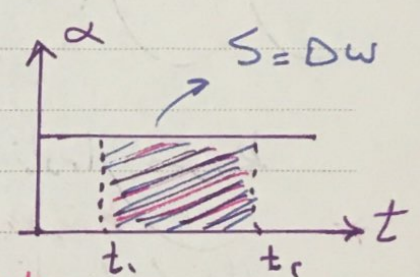 α
S = Dω
t
t₁ t₂